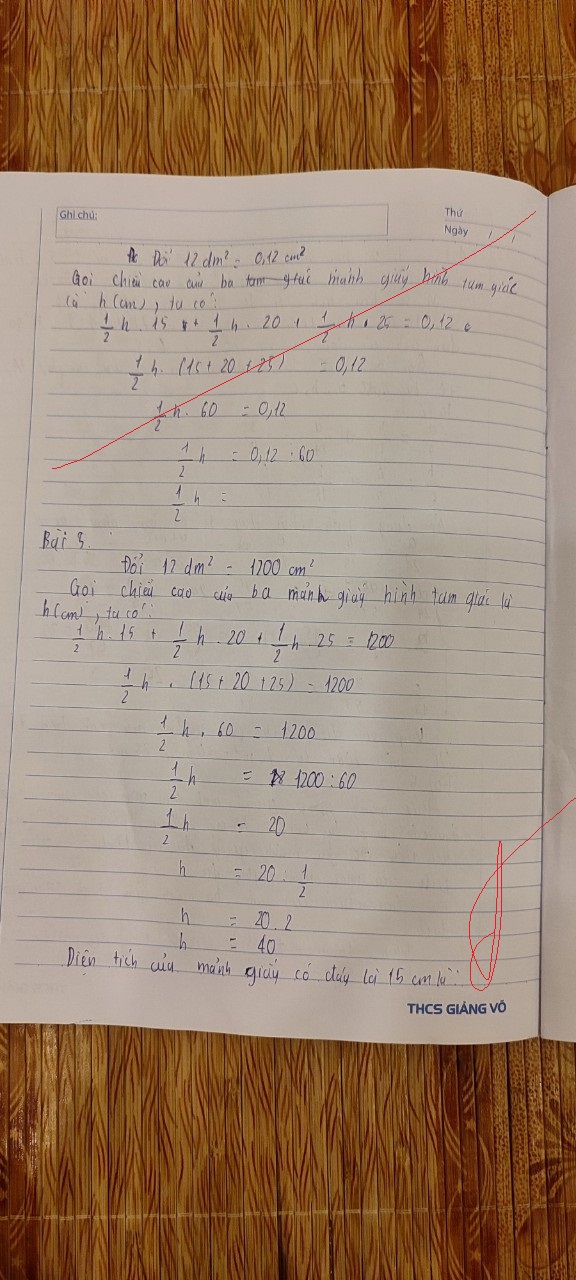 Ghi chú:
Thứ
Ngày / /
Đổi 12 dm² = 0,12 cm²
Gọi chiều cao của ba tam giác mảnh giấy hình tam giác
là h(cm), ta có:
1/2 h . 15 + 1/2 h . 20 + 1/2 . h . 25 = 0,12
1/2 h . (15 + 20 + 25) = 0,12
1/2 h . 60 = 0,12
1/2 h = 0,12 . 60
1/2 h =
Bài 5.
Đổi 12 dm² = 1200 cm²
Gọi chiều cao của ba mảnh giấy hình tam giác là
h(cm), ta có:
1/2 h . 15 + 1/2 h . 20 + 1/2 h . 25 = 1200
1/2 h . (15 + 20 + 25) = 1200
1/2 h . 60 = 1200
1/2 h = 1200 : 60
1/2 h = 20
h = 20 : 1/2
h = 20 . 2
h = 40
Diện tích của mảnh giấy có đáy là 15 cm là:
THCS GIẢNG VÕ